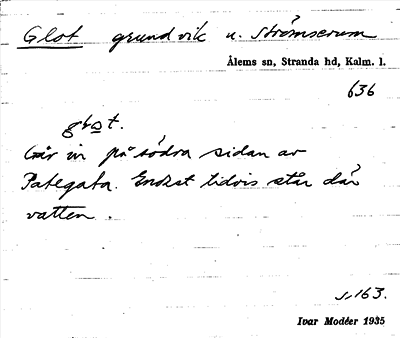 Glot grundvik u. Strömserum
Ålems sn, Stranda hd, Kalm. l.
636
glot.
Går in på södra sidan av
Pategata. Endast tidvis står där
vatten.
s. 163.
Ivar Modéer 1935